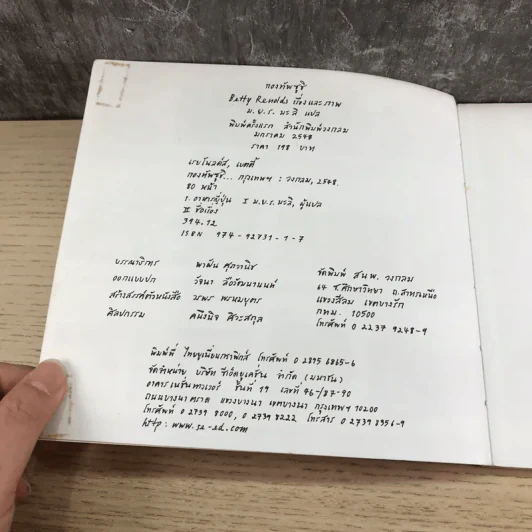 กองทัพซูชิ
Betty Renolds เรื่องและภาพ
ม.ย.ร. มะลิ แปล
พิมพ์ครั้งแรก สำนักพิมพ์วงกลม
มกราคม 2548
ราคา 198 บาท
เรย์โนลด์ส, เบตตี้
กองทัพซูชิ... กรุงเทพฯ : วงกลม, 2548.
80 หน้า
1. อาหารญี่ปุ่น I ม.ย.ร.มะลิ, ผู้แปล
II ชื่อเรื่อง
394.12
ISBN 974-92831-1-7
บรรณาธิการ พาฝัน ศุภวานิช
ออกแบบปก วัจนา ลือรัตนานนท์
สร้างสรรค์ตัวหนังสือ พรหมบุตร
ศิลปกรรม คนึงนิจ ศิวะสกุล
จัดพิมพ์ สนพ. วงกลม
64 ซ.ศึกษาวิทยา ถ.สาทรเหนือ
แขวงสีลม เขตบางรัก
กทม. 10500
โทรศัพท์ 0 2237 9248-9
พิมพ์ที่ ไทยยูเนี่ยนกราฟิกส์ โทรศัพท์ 0 2895 6865-6
จัดจำหน่าย บริษัท ซีเอ็ดยูเคชั่น จำกัด (มหาชน)
อาคารเนชั่นทาวเวอร์ ชั้นที่ 19 เลขที่ 46/87-90
ถนนบางนาตราด แขวงบางนา เขตบางนา กรุงเทพฯ 10200
โทรศัพท์ 0 2739 8000, 0 2739 8222 โทรสาร 0 2739 8356-9
http: www.se-ed.com